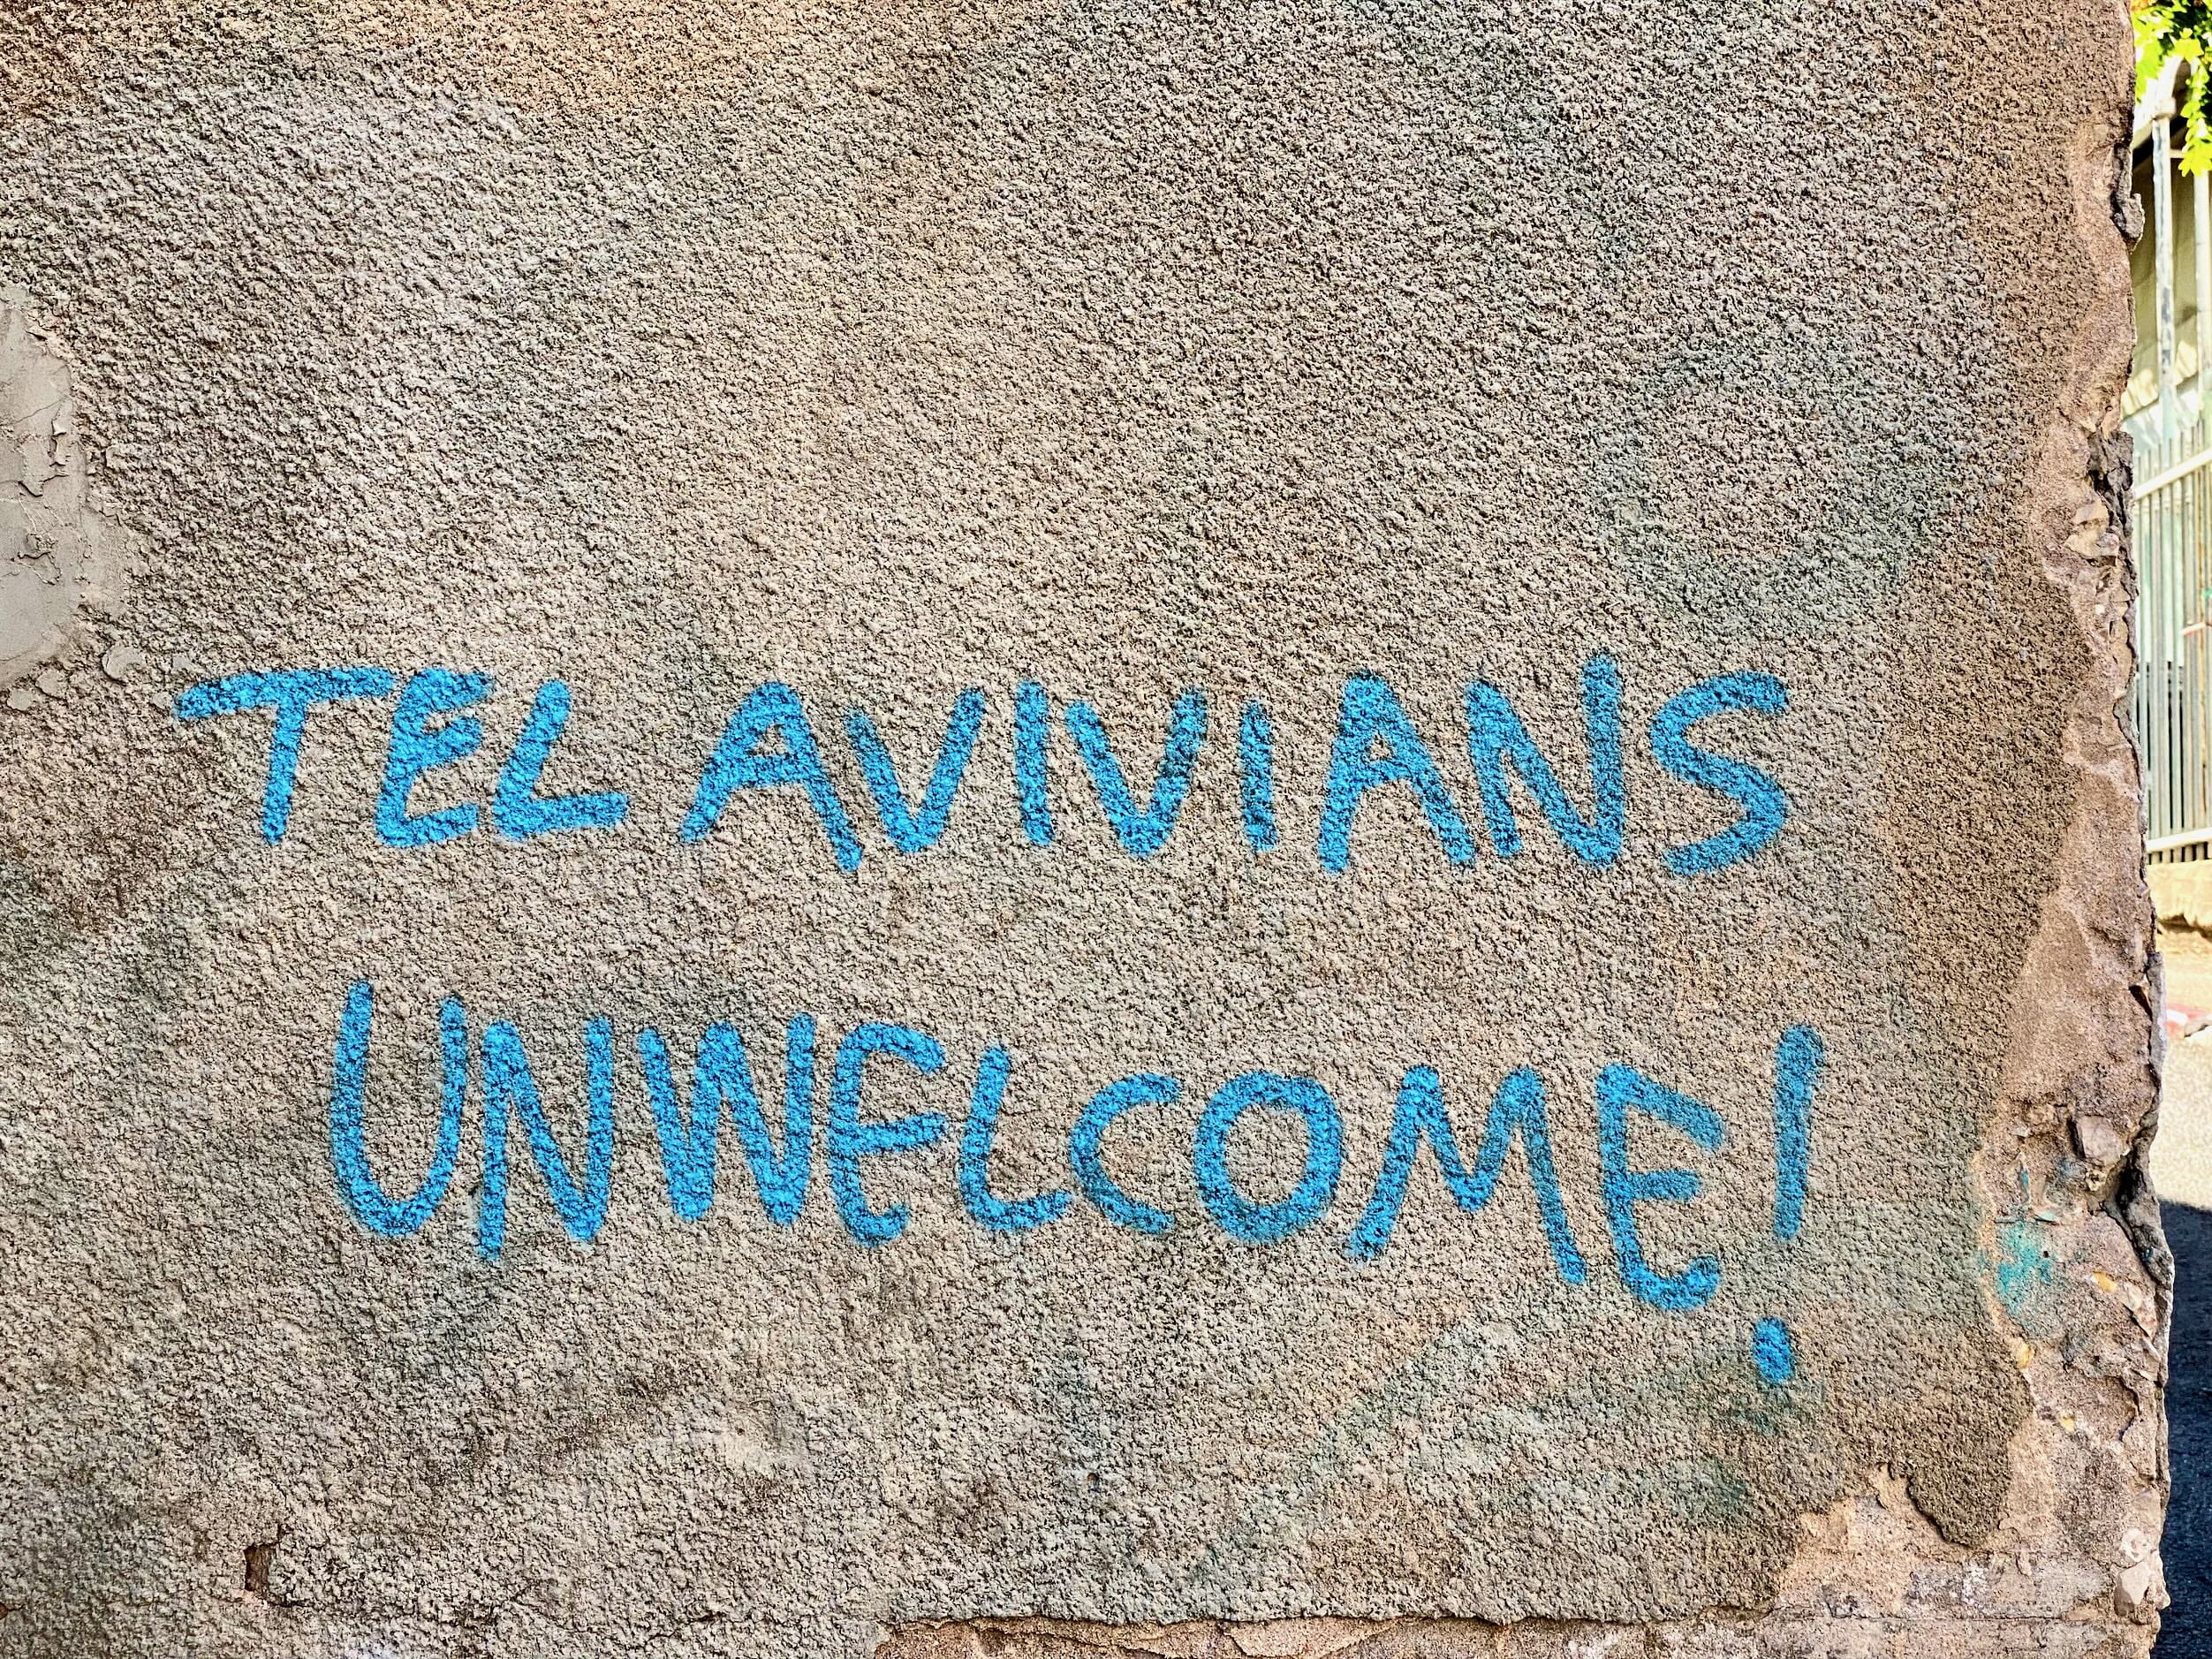 TEL AVIVIANS
UNWELCOME!